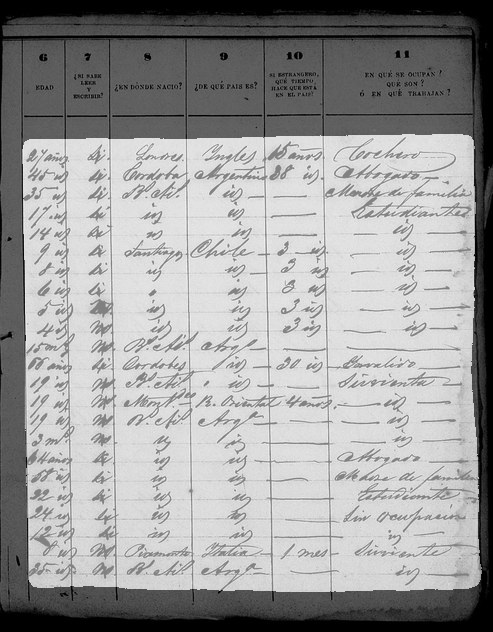 6 7 8 9 10 11
EDAD ¿SI SABE LEER Y ESCRIBIR? ¿EN DÓNDE NACIÓ? ¿DE QUÉ PAIS ES? SI ESTRANGERO, QUÉ TIEMPO HACE QUE ESTÁ EN EL PAIS? EN QUÉ SE OCUPAN? QUÉ SON? Ó EN QUÉ TRABAJAN?
27 años Si Londres Ingles 15 años Cochero
45 id Si Cordoba Argentino 28 id Abogado
35 id Si Bs As. id — Madre de familia
17 id Si id id — Estudiantes
14 id Si id id — id
9 id Si Santiago Chile 3 id — id
8 id Si id id 3 id — id
6 id Si id 3 id — id
5 id id id 3 id — id
4 id M id id 3 id — id
15 ms M Bs As. Arga —
años Si Cordobes id 30 id
19 id M Bs As. id — Sirvienta
19 id M R. Oriental 4 años — id
19 id M Bs As. Arga — id
3 ms M id id — id
64 años Si id id — Abogado
58 id Si id id — Madre de familia
22 id Si id id — Estudiante
24 id Si id id — Sin ocupacion
12 id Si id id — id
id M Piamonte Italia 1 mes Sirviente
25 id M Bs As. Arga — id